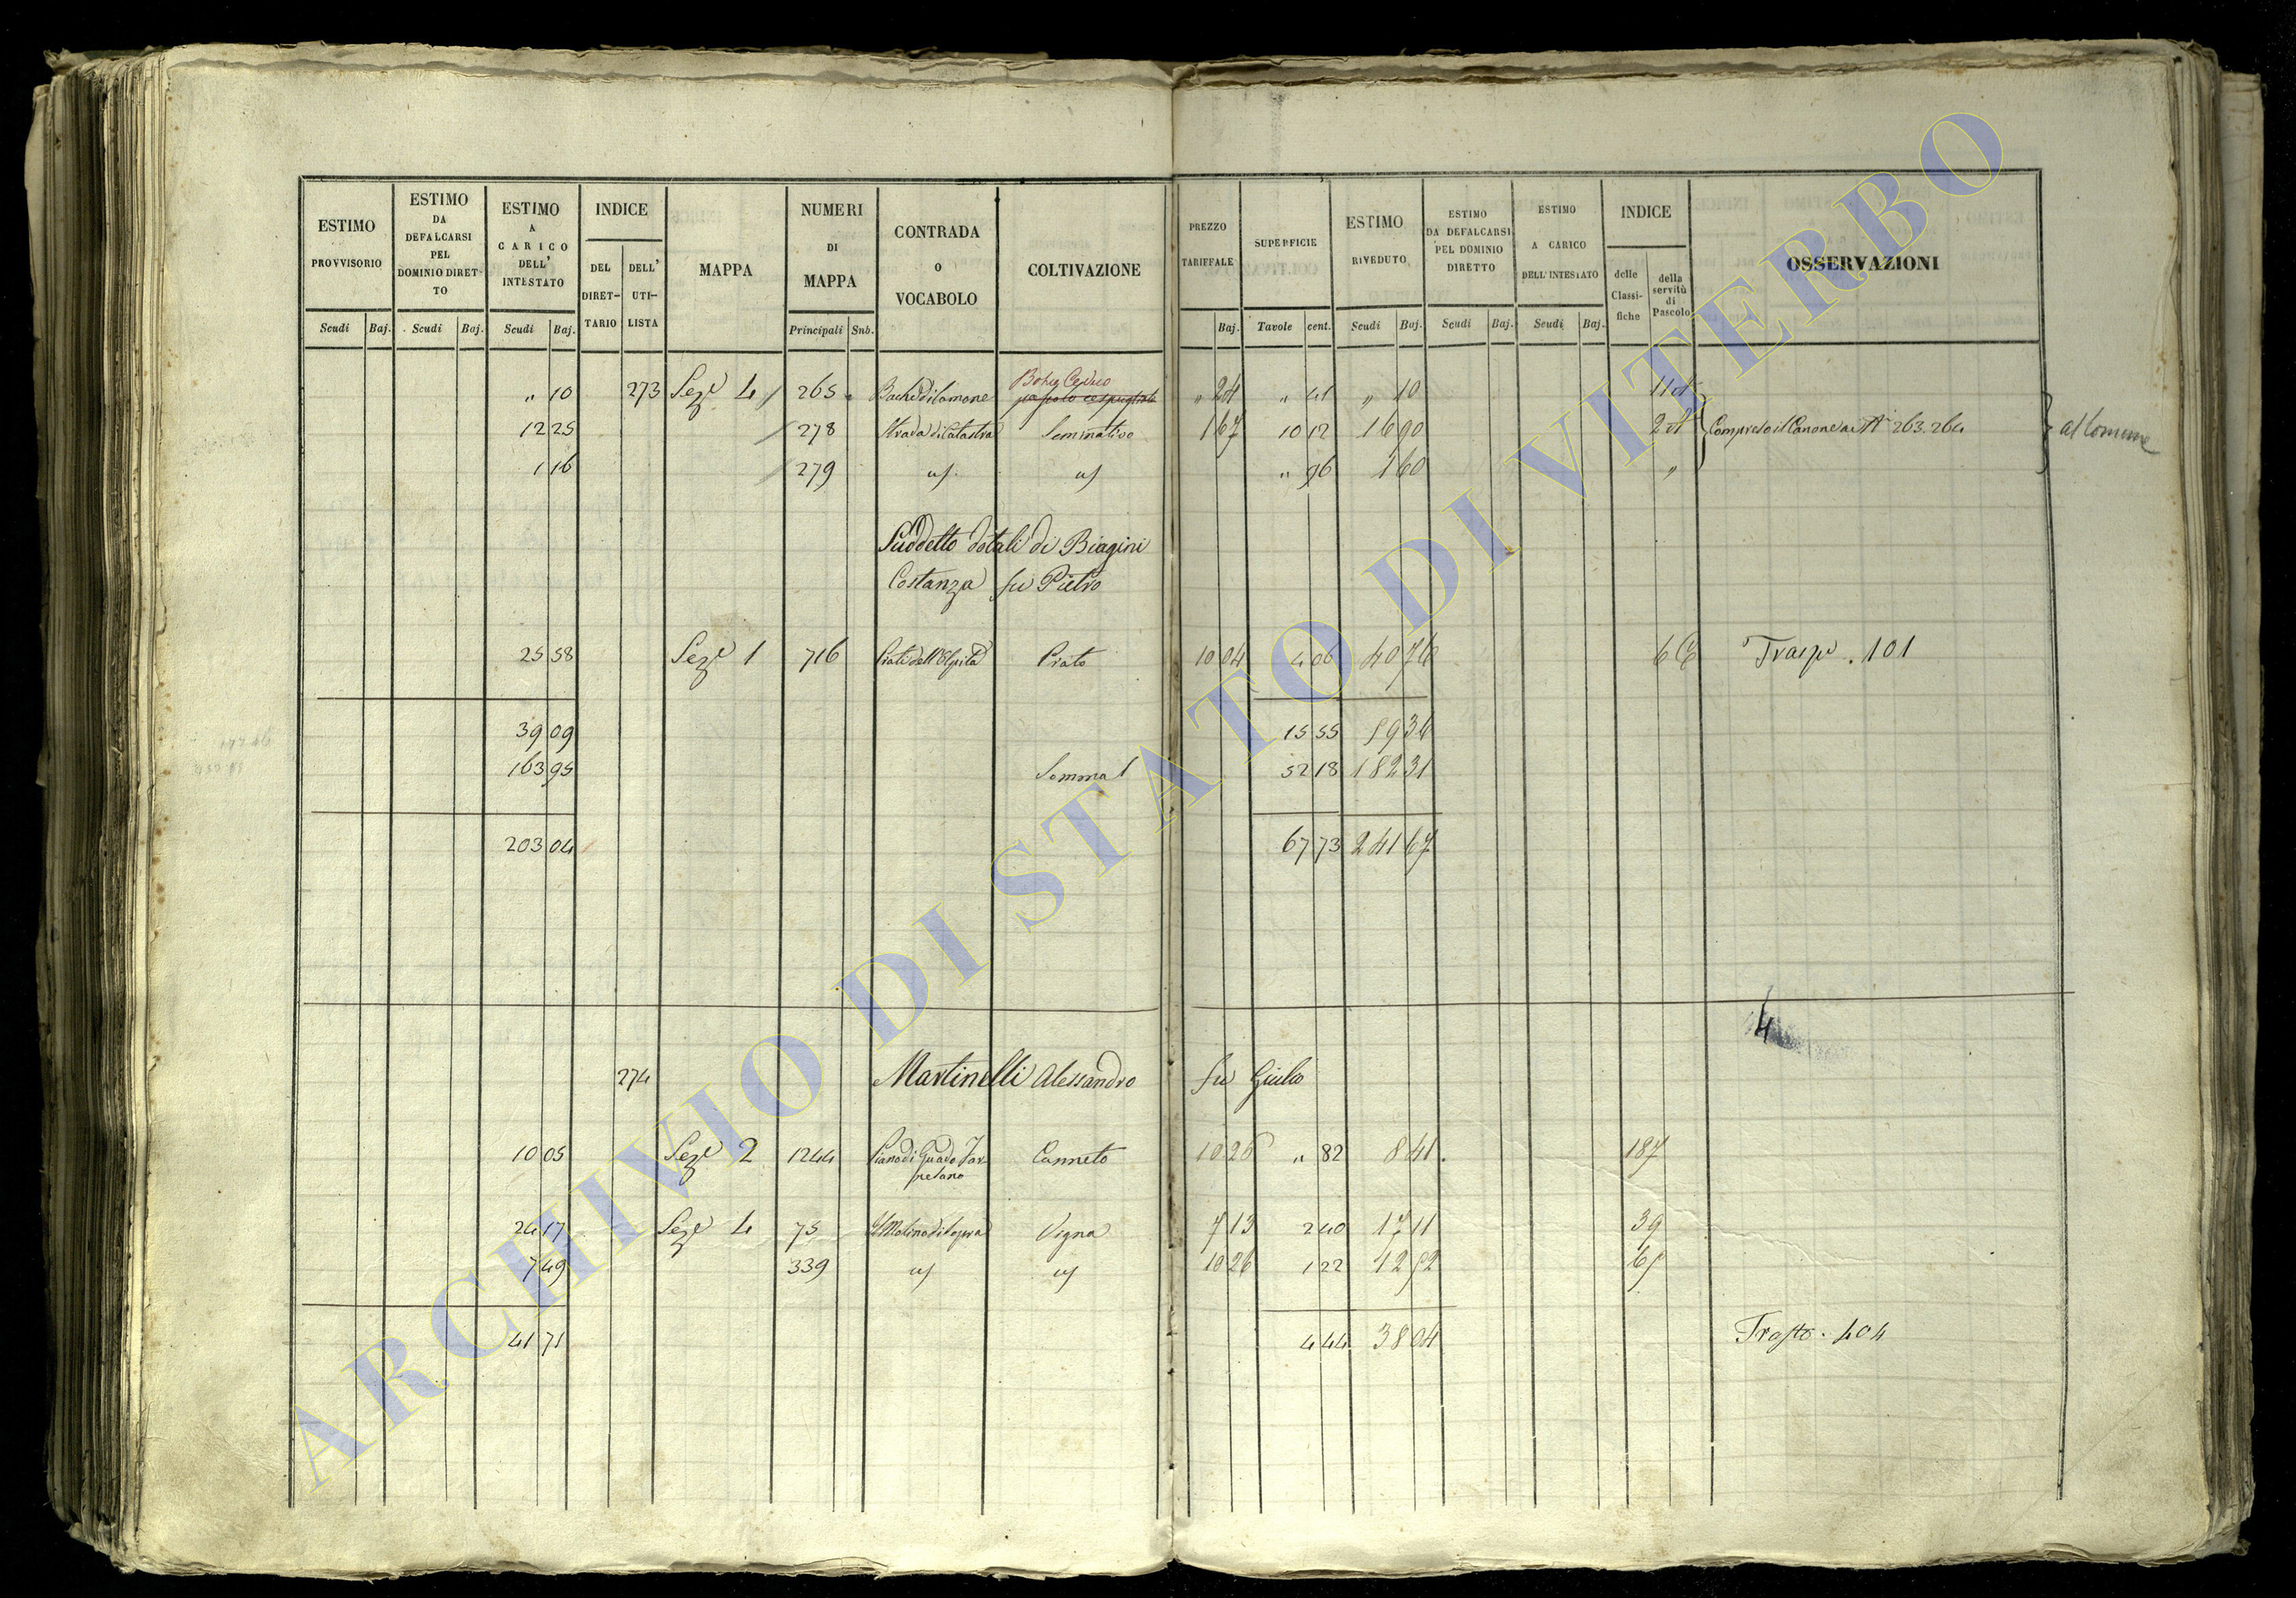 ESTIMO PROVVISORIO
ESTIMO DA DEFALCARSI PEL DOMINIO DIRET- TO
ESTIMO A CARICO DELL' INTESTATO
INDICE
DEL DIRET- TARIO
DELL' UTI- LISTA
MAPPA
NUMERI DI MAPPA
CONTRADA O VOCABOLO
COLTIVAZIONE
PREZZO TARIFFALE
SUPERFICIE
ESTIMO RIVEDUTO
ESTIMO DA DEFALCARSI PEL DOMINIO DIRETTO
ESTIMO A CARICO DELL'INTESTATO
INDICE
delle Classi- fiche
della servitù di Pascolo
OSSERVAZIONI
Scudi Baj. Scudi Baj. Scudi Baj. Principali Snb. Baj. Tavole cent. Scudi Baj. Scudi Baj. Scudi Baj.
Ceduo
" 10 273 Seze 4 265 " 24 " 41 " 10
12 25 278 Seminativo 1 67 10 12 16 90 Compreso il Canone ai N 263.264 al Comune
1 16 279 " 96 1 60 "
Suddetto dotali di Biagini
Costanza fu Pietro
25 58 Seze 1 716 Prato 10 04 4 06 40 76 101
39 09 15 55 59 36
163 95 Somma 52 18 182 31
203 04 67 73 241 67
4
274 Martinelli Alessandro fu Giulio
10 05 Seze 2 1244 Piano di Guado Tar- Canneto 10 26 " 82 8 41 187
24 17 Seze 4 75 Vigna 7 13 2 40 17 11 39
7 49 339 10 26 1 22 12 52
41 71 4 44 38 04 404
ARCHIVIO DI STATO DI VITERBO